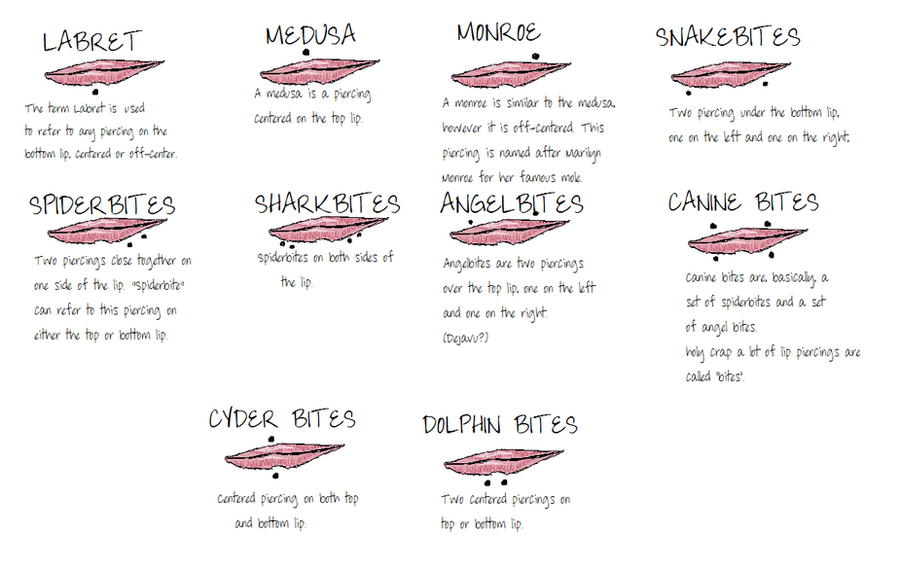 LABRET
The term Labret is used
to refer to any piercing on the
bottom lip, centered or off-center.
MEDUSA
A medusa is a piercing
centered on the top lip.
MONROE
A monroe is similar to the medusa,
however it is off-centered. This
piercing is named after Marilyn
Monroe for her famous mole.
SNAKEBITES
Two piercing under the bottom lip,
one on the left and one on the right;
SPIDERBITES
Two piercings close together on
one side of the lip. "Spiderbite"
can refer to this piercing on
either the top or bottom lip.
SHARKBITES
Spiderbites on both sides of
the lip.
ANGELBITES
Angelbites are two piercings
over the top lip, one on the left
and one on the right.
(Dejavu?)
CANINE BITES
Canine bites are, basically, a
set of spiderbites and a set
of angel bites.
holy crap a lot of lip piercings are
called "bites".
CYDER BITES
Centered piercing on both top
and bottom lip.
DOLPHIN BITES
Two centered piercings on
top or bottom lip.